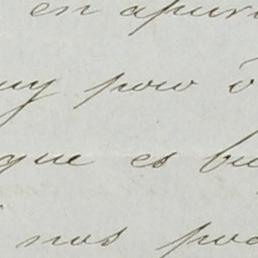 en apur
uy poco ó
que es bu
nos po